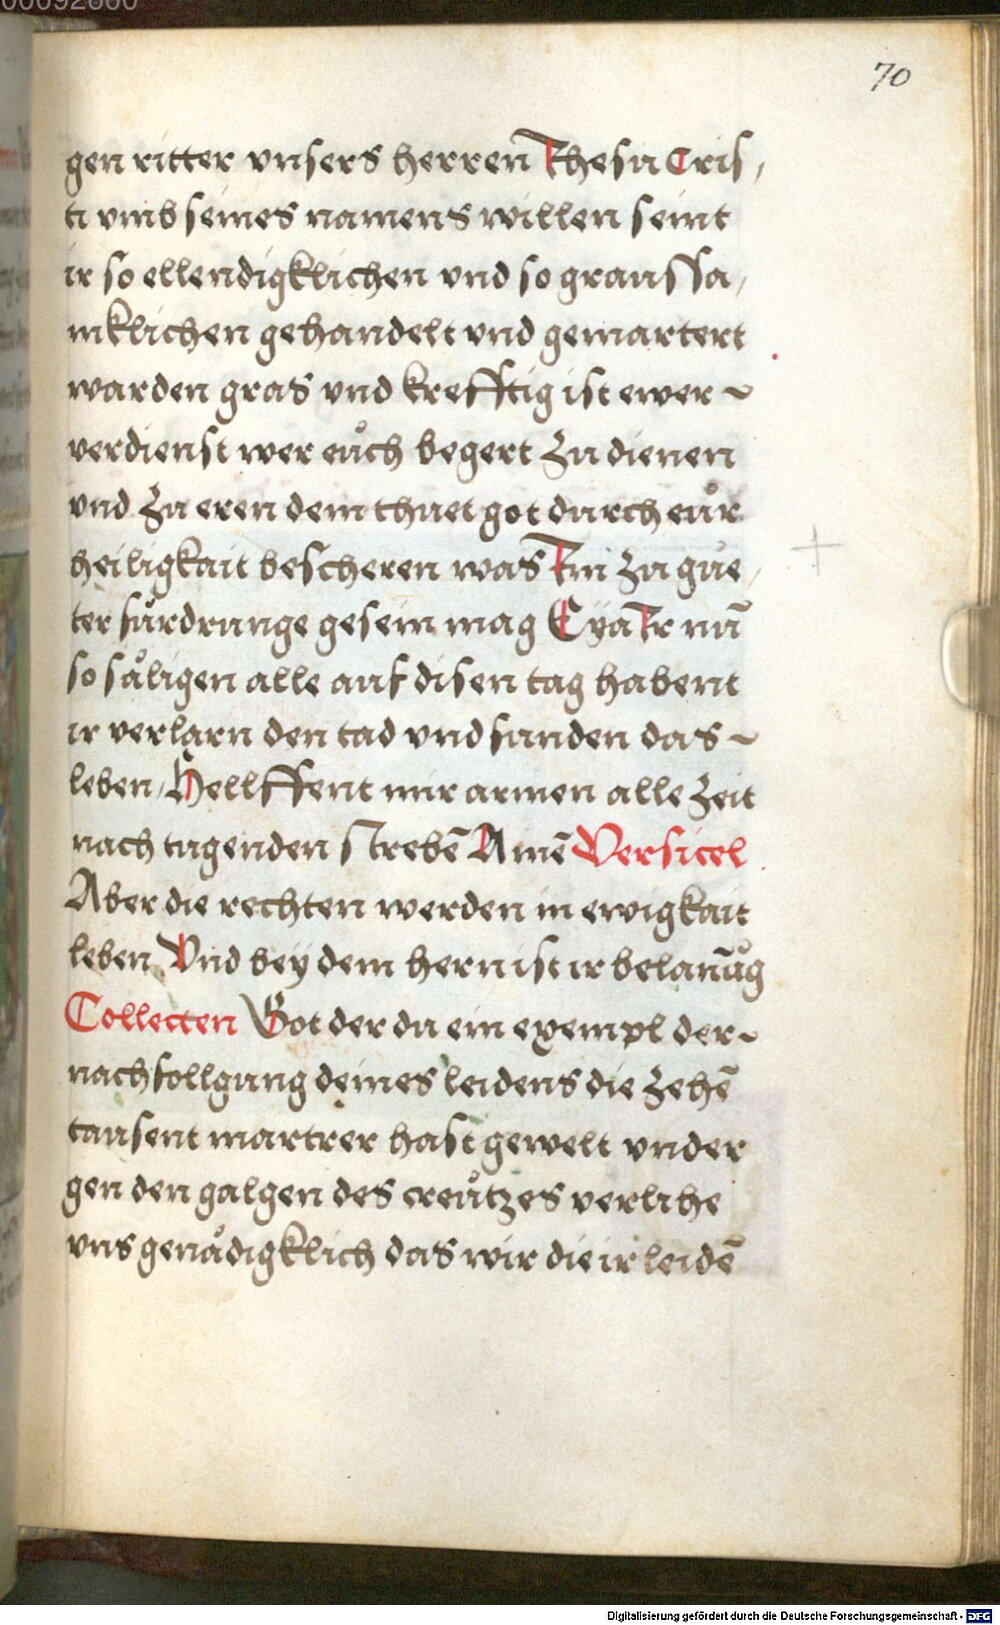 00092800
70
gen ritter vnsers herren Jhesu Cris,
ti vmb seines namens willen seint
ir so ellendigklichen vnd so graussa,
mklichen gehandelt vnd gemartert
warden gros vnd krefftig ist ewer ~
verdienst wer euͦch begert zu dienen
vnd zu eren dem thuet got durch euͦr
heiligkait bescheren was Im zu gue,
ter fuͦrdrunge gesein mag Eya Ir nū
so saͦligen alle auf disen tag habent
ir verlorn den tod vnd funden das ~
leben, Hellffent mir armen alle zeit
nach tugenden strebē Amē Versicel
Aber die rechten werden in ewigkait
leben Vnd bey dem hern ist ir belonūg
Collecten Got der du ein exempl der ~
nachfollgung deines leidens die zehē
tausent martrer hast gewelt vnder
gen den galgen des creuͦtzes verlihe
vns genaͦdigklich das wir die ir leidē
Digitalisierung gefördert durch die Deutsche Forschungsgemeinschaft - DFG